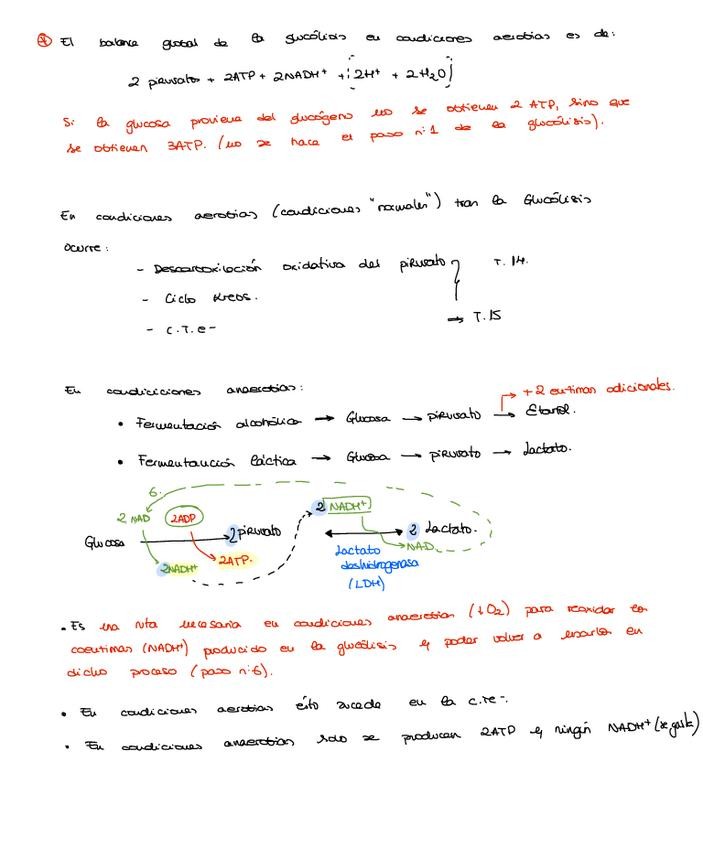 * El balance global de la glucólisis en condiciones aerobias es de:
2 piruvatos + 2ATP + 2NADH⁺ + (2H⁺ + 2H₂O)
Si la glucosa proviene del glucógeno no se obtienen 2 ATP, sino que
se obtienen 3ATP. (no se hace el paso nº1 de la glucólisis).
En condiciones aerobias (condiciones "normales") tran la Glucólisis
ocurre:
- Descarboxilación oxidativa del piruvato T. 14.
- Ciclo Krebs.
- C.T.e- → T.15
En condiciciones anaerobias:
+2 enzimas adicionales.
• Fermentación alcohólica → Glucosa → piruvato → Etanol.
• Fermentaución láctica → Glucosa → piruvato → Lactato.
6.
2 NAD 2ADP 2 NADH⁺
Glucosa → 2 piruvato 2 Lactato.
2NADH⁺ 2ATP. Lactato NAD
deshidrogenasa
(LDH)
• Es una ruta necesaria en condiciones anaerobias (↓O₂) para reoxidar los
coenzimas (NADH⁺) producido en la glucólisis y poder volver a usarlos en
dicho proceso (paso nº6).
• En condiciones aerobias esto sucede en la c.te-.
• En condiciones anaerobias solo se producen 2ATP y ningún NADH⁺ (se gasta)